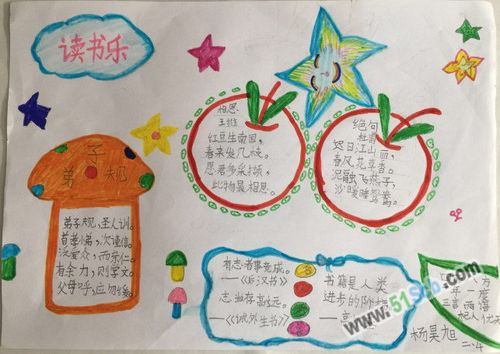 读书乐
弟子规
弟子规,圣人训。
首孝弟,次谨信。
泛爱众,而亲仁。
有余力,则学文。
父母呼,应勿缓。
相思
王维
红豆生南国,
春来发几枝。
愿君多采撷,
此物最相思。
绝句
杜甫
迟日江山丽,
春风花草香。
泥融飞燕子,
沙暖睡鸳鸯。
有志者事竟成。
——《后汉书》
志当存高远。
——《诫外生书》
书籍是人类
进步的阶梯
www.51Sxb.com
杨昊旭
二.4